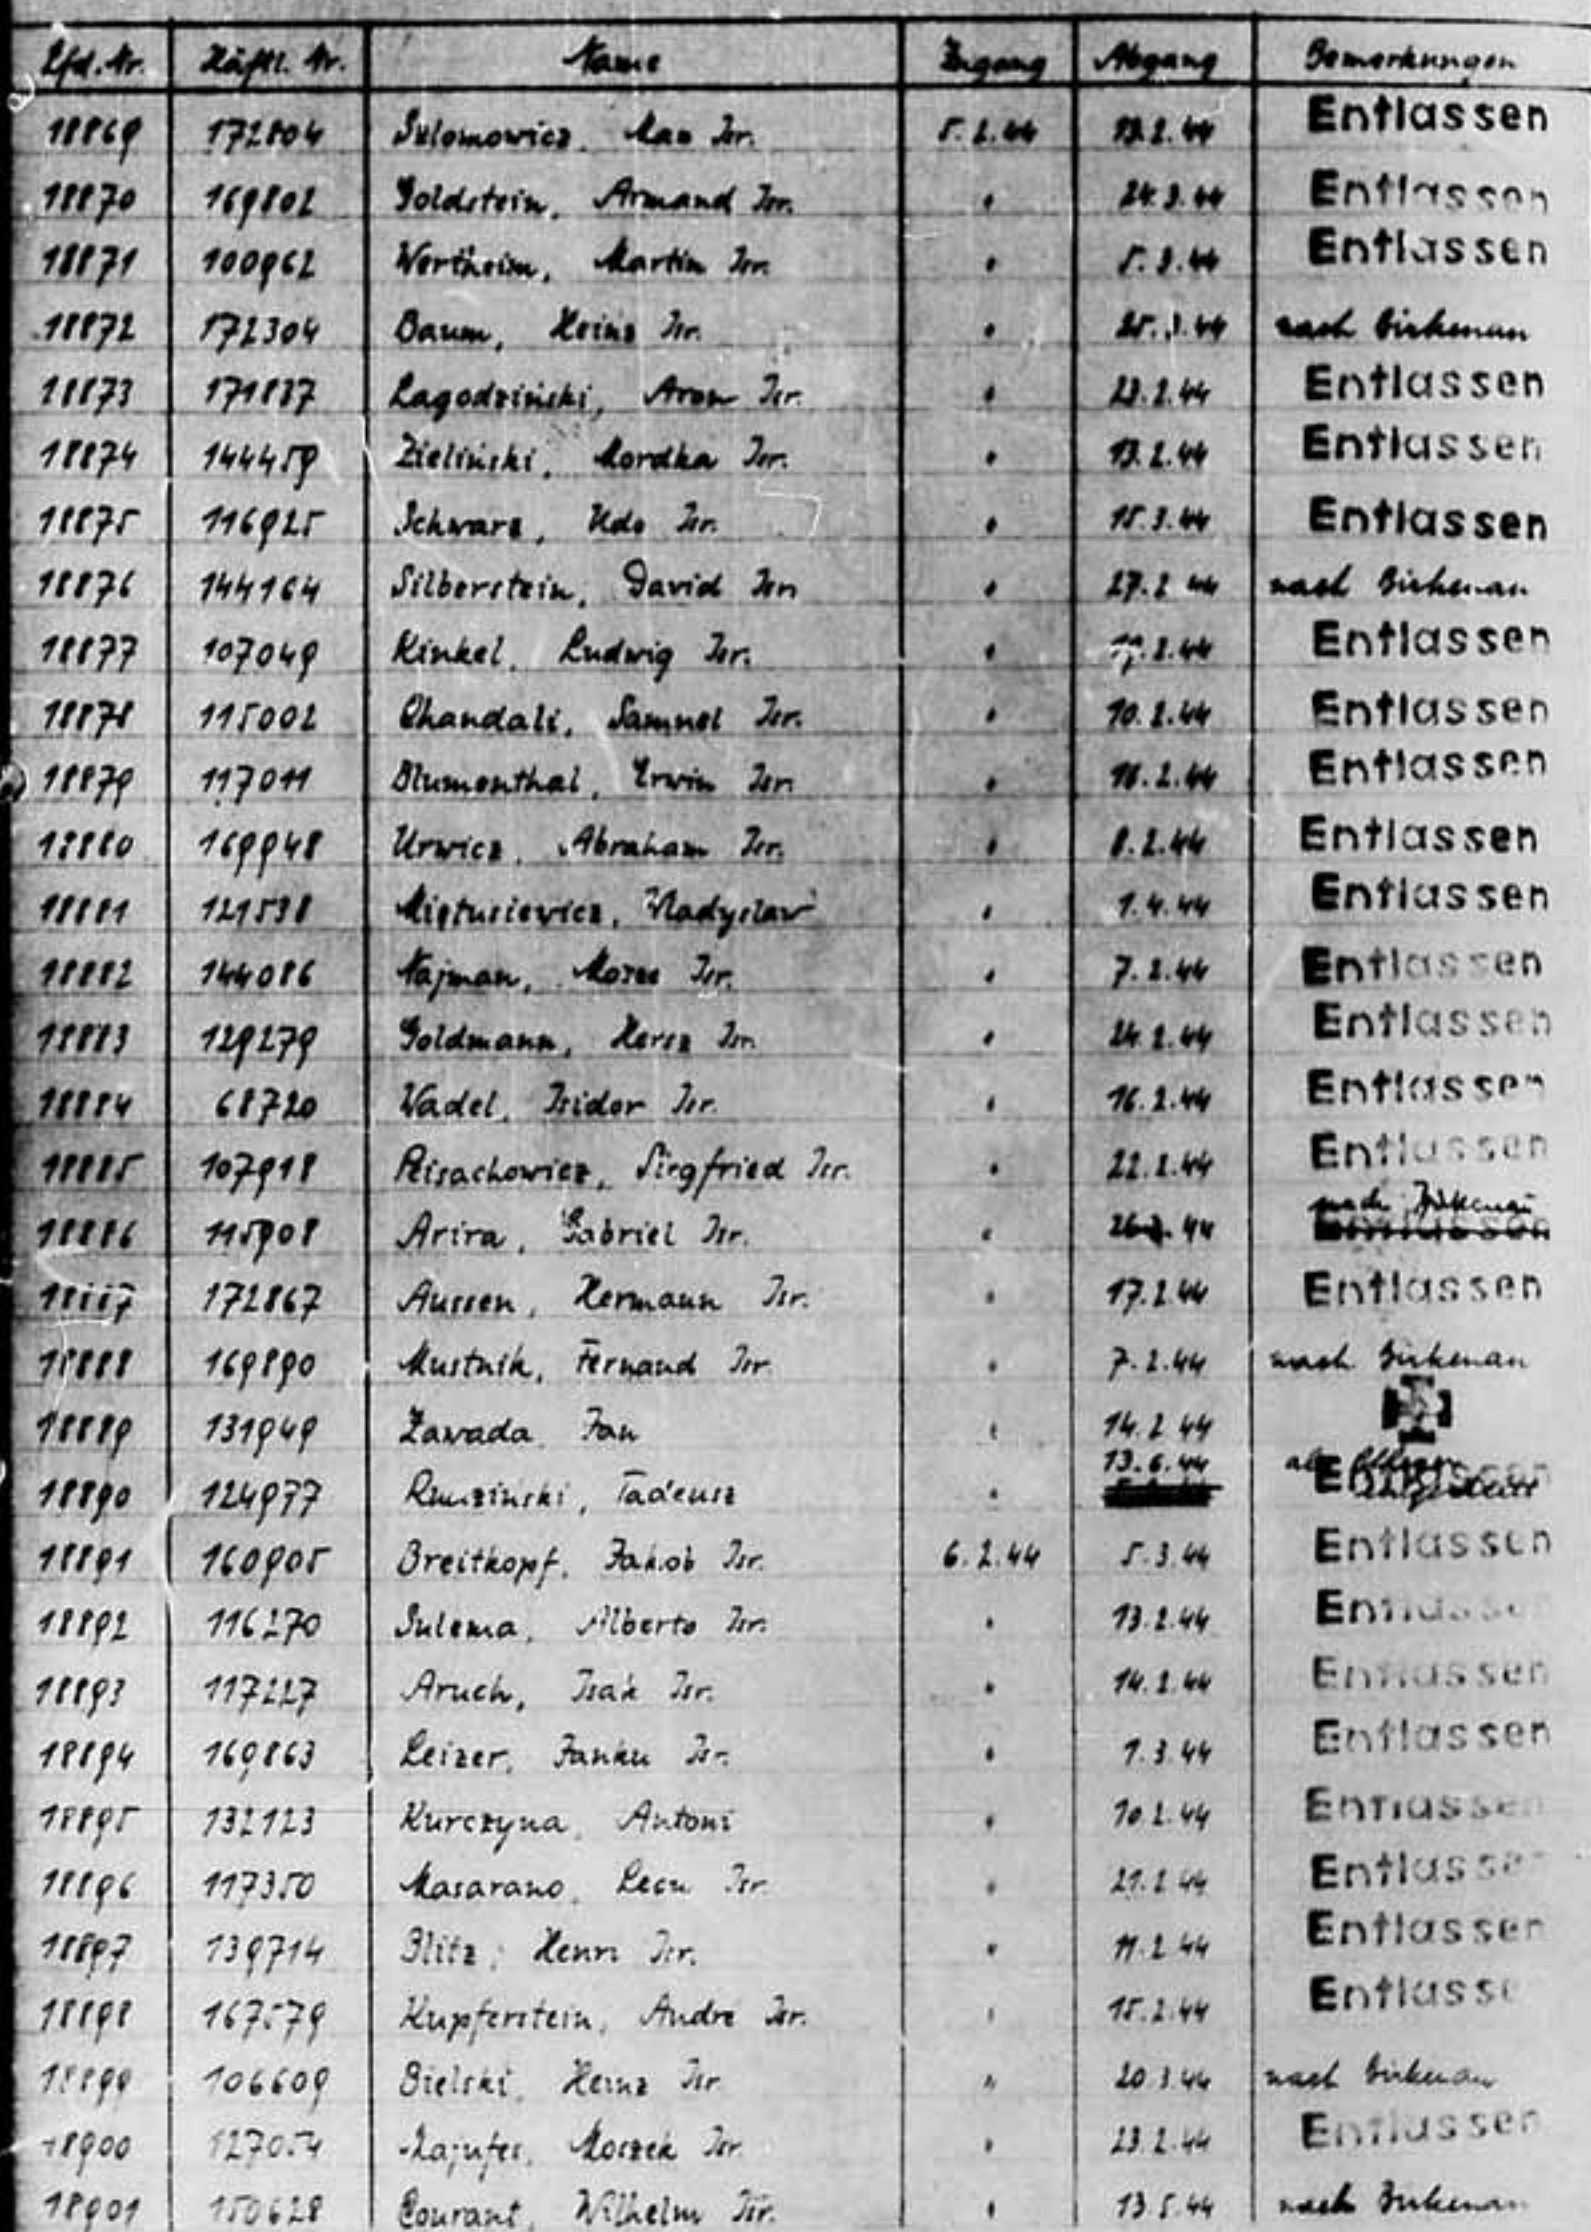 Lfd. Nr. Häftl. Nr. Name Zugang Abgang Bemerkungen
18869 172804 Max Isr. 5.2.44 Entlassen
18870 169802 Goldstein, Armand Isr. " 24.3.44 Entlassen
18871 100962 Wertheim, Martin Isr. " 5.3.44 Entlassen
18872 172304 Baum, Heinz Isr. " 25.3.44 nach Birkenau
18873 171837 Lagodziński, Aron Isr. " 23.2.44 Entlassen
18874 144459 Zieliński, Mordka Isr. " 13.2.44 Entlassen
18875 116925 Schwarz, Udo Isr. " 15.3.44 Entlassen
18876 144164 Silberstein, David Isr. " 27.2.44 nach Birkenau
18877 107049 Kinkel, Ludwig Isr. " Entlassen
18878 115002 Chandali, Samuel Isr. " 10.2.44 Entlassen
18879 117011 Blumenthal, Erwin Isr. " 16.2.44 Entlassen
18880 169948 Urwicz, Abraham Isr. " 8.2.44 Entlassen
18881 121538 Miętusiewicz, Wladyslaw " 1.4.44 Entlassen
18882 144086 Najman, Isr. " 7.2.44 Entlassen
18883 129279 Goldmann, Hersz Isr. " 24.2.44 Entlassen
18884 68720 Wadel, Isidor Isr. " 16.2.44 Entlassen
18885 107918 Reisachowicz, Siegfried Isr. " 22.2.44 Entlassen
nach Birkenau
18886 115908 Arira, Gabriel Isr. " Entlassen
18887 172867 Aussen, Hermann Isr. " 17.2.44 Entlassen
18888 169890 Mustnik, Fernand Isr. " 7.2.44 nach Birkenau
18889 131949 Zawada, Jan " 14.2.44
13.6.44
18890 124977 Tadeusz " Entlassen
18891 160905 Breitkopf, Jakob Isr. 6.2.44 5.3.44 Entlassen
18892 116270 Sulema, Alberto Isr. " 13.2.44 Entlassen
18893 117227 Aruch, Isak Isr. " 14.2.44 Entlassen
18894 169863 Leizer, Janku Isr. " 1.3.44 Entlassen
18895 132123 Kurczyna, Antoni " 10.2.44 Entlassen
18896 117350 Masarano, Leon Isr. " 21.2.44 Entlassen
18897 139714 Blitz, Henri Isr. " 11.2.44 Entlassen
18898 167579 Kupferstein, André Isr. " 15.2.44 Entlassen
18899 106609 Bielski, Heinz Isr. " 20.3.44 nach Birkenau
18900 127054 Moszek Isr. " 23.2.44 Entlassen
18901 150628 Courant, Wilhelm Isr. " 13.5.44 nach Birkenau